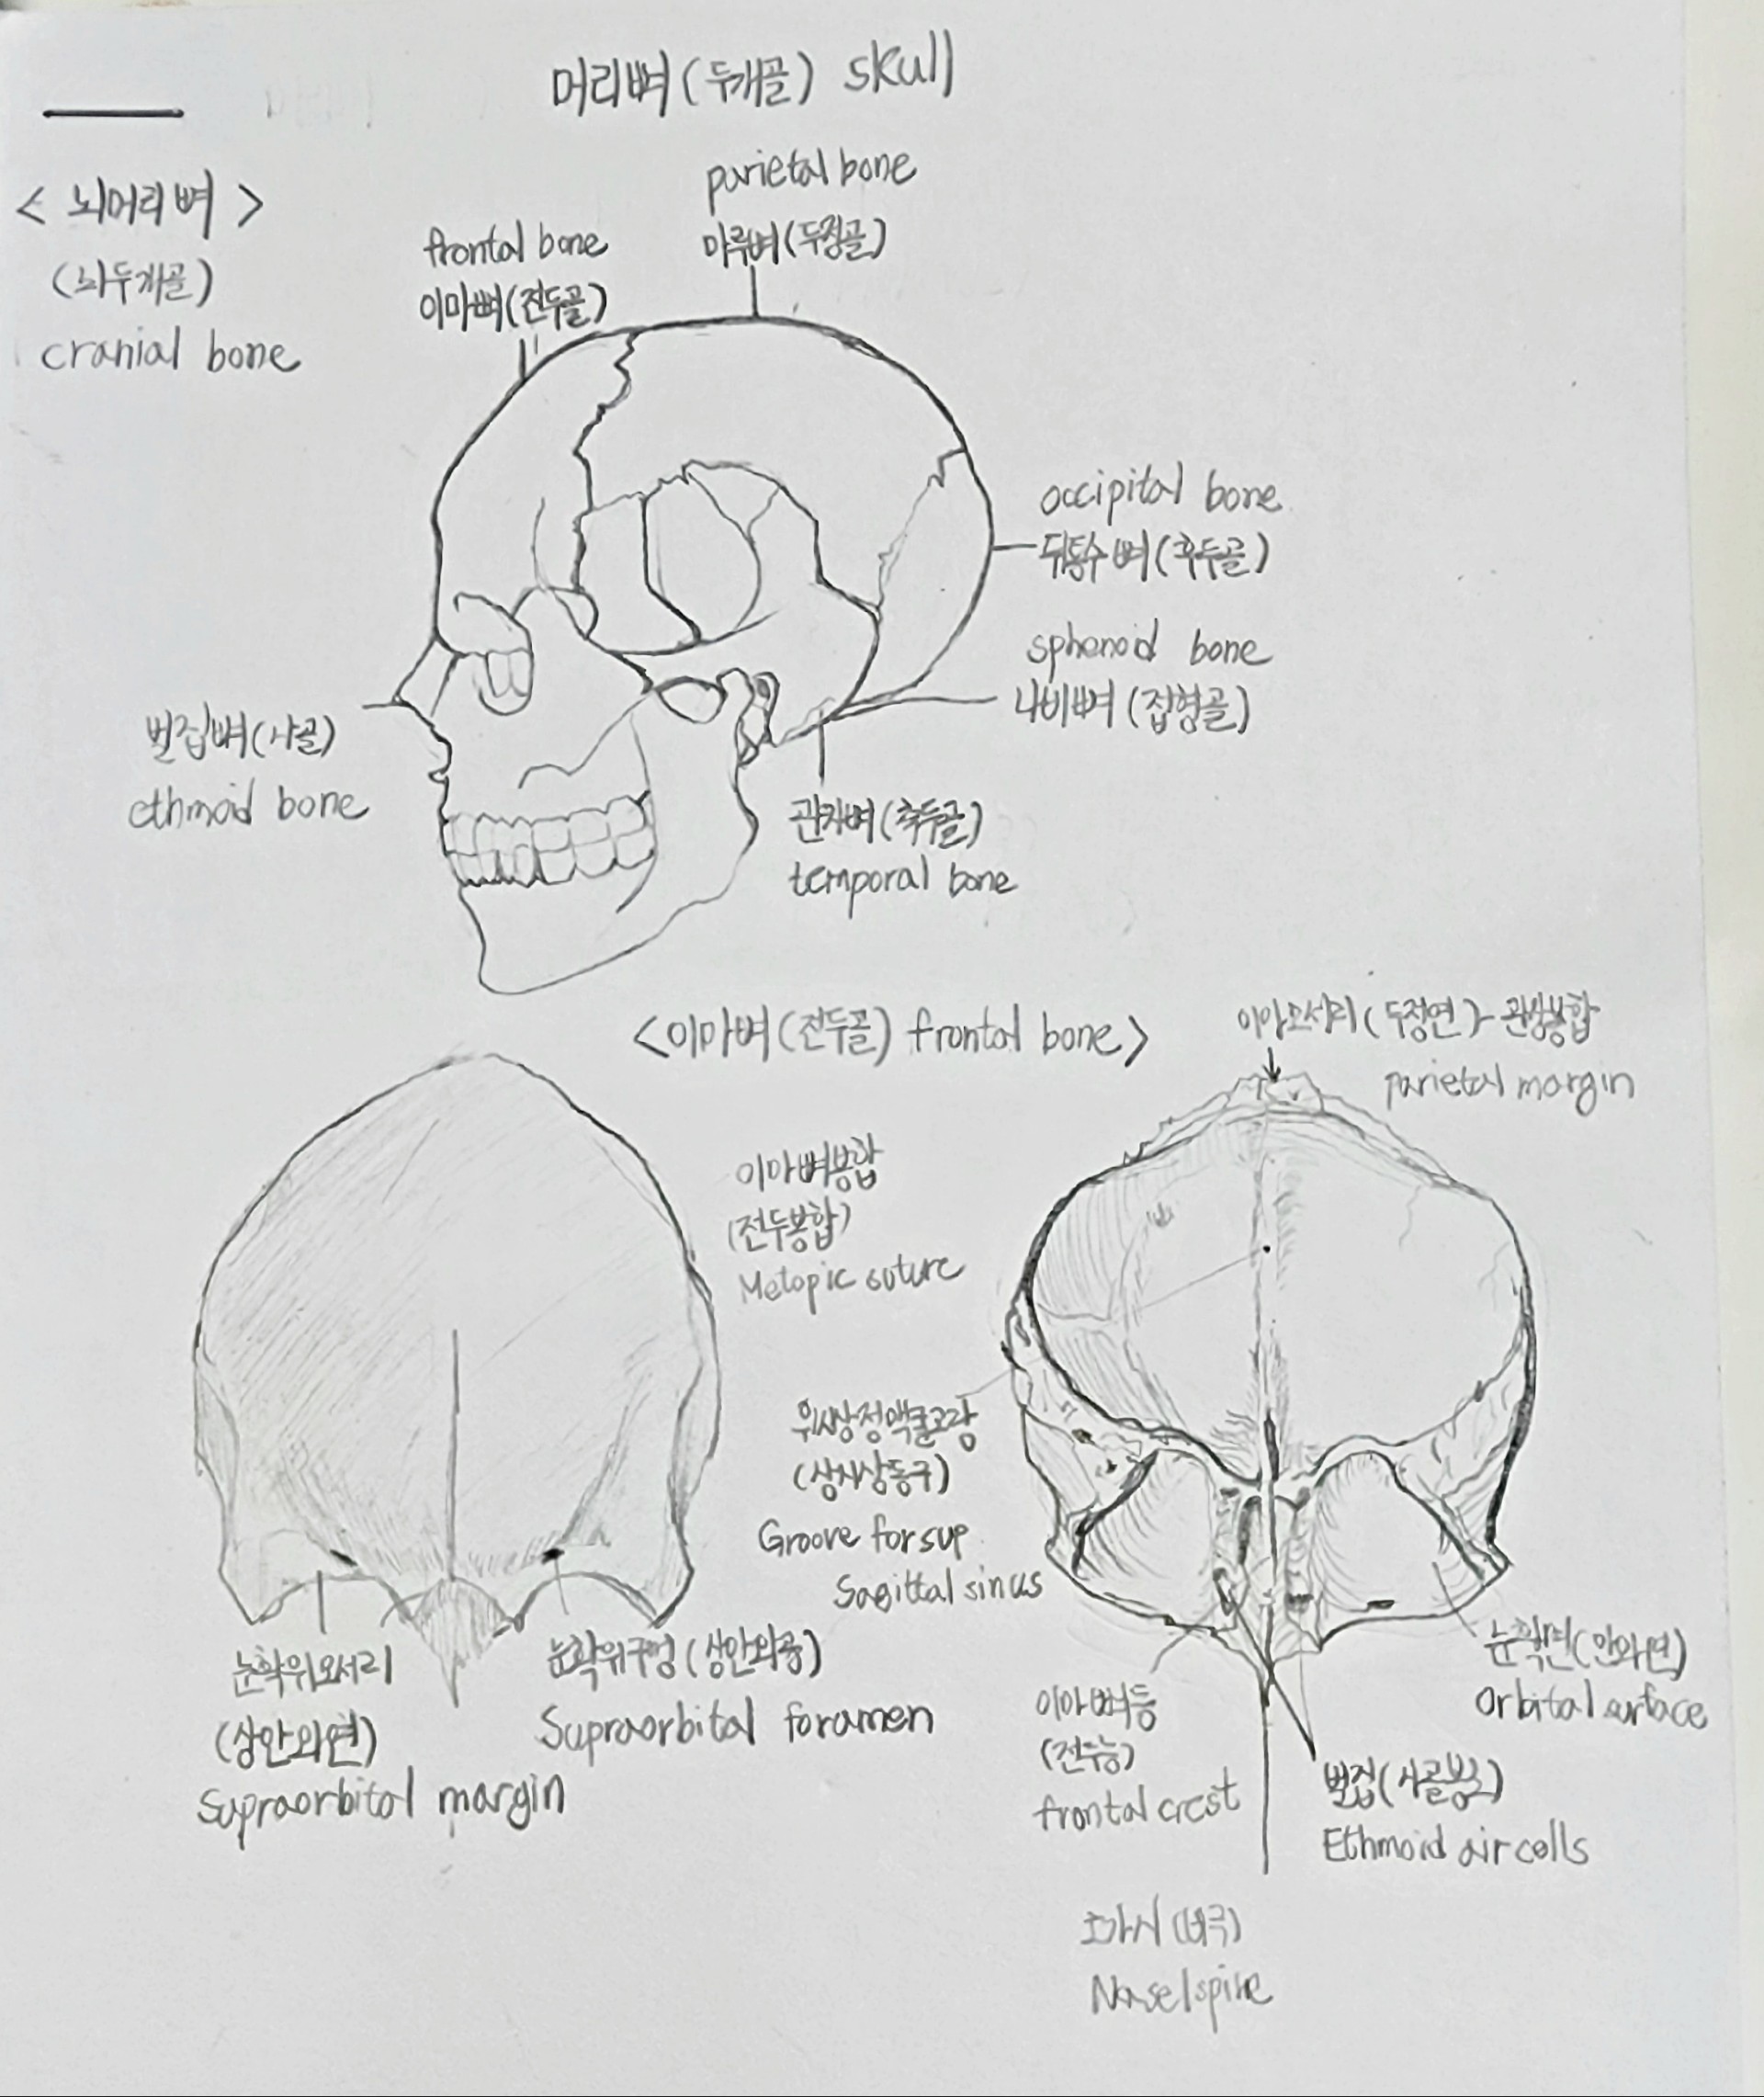 머리뼈(두개골) skull
< 뇌머리뼈 >
(뇌두개골)
cranial bone
parietal bone
마루뼈(두정골)
frontal bone
이마뼈(전두골)
occipital bone
뒤통수뼈(후두골)
sphenoid bone
나비뼈(접형골)
벌집뼈(사골)
ethmoid bone
관자뼈(측두골)
temporal bone
<이마뼈(전두골) frontal bone>
이마모서리(두정연)-관상봉합
parietal margin
이마뼈봉합
(전두봉합)
Metopic suture
위시상정맥굴고랑
(상시상동구)
Groove for sup.
Sagittal sinus
눈확위모서리
(상안와연)
Supraorbital margin
눈확위구멍(상안와공)
Supraorbital foramen
이마뼈능
(전두능)
frontal crest
눈확면(안와면)
Orbital surface
벌집(사골봉소)
Ethmoid air cells
코가시(비극)
Nasal spine